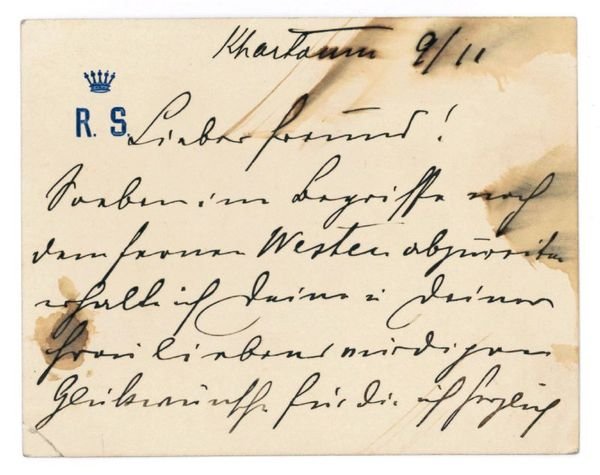 Khartoum 9/11
R. S.
Lieber Freund!
Soeben im Begriffe nach
dem fernen Westen abzureiten
erhalte ich Deine u Deiner
Frau liebenswürdigen
Glückwünsche für die ich herzlich